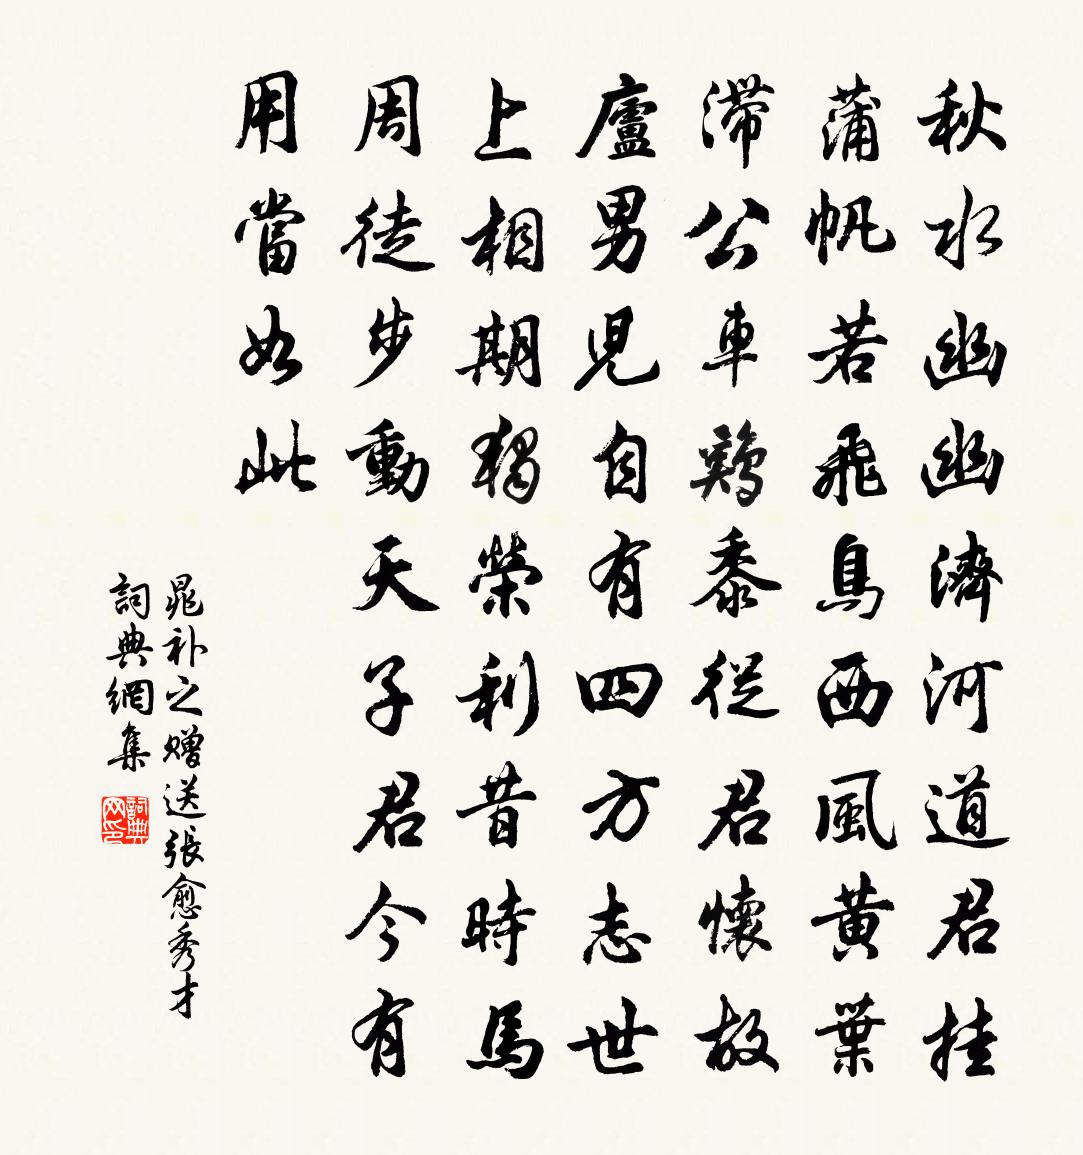 秋水幽幽濟河道君挂
蒲帆若飛鳥西風黃葉
滯公車鷄黍從君懷故
廬男兒自有四方志世
上相期獨榮利昔時馬
周徒步動天子君今有
用當如此
晁补之赠送張愈秀才
詞典網集
詞典网印